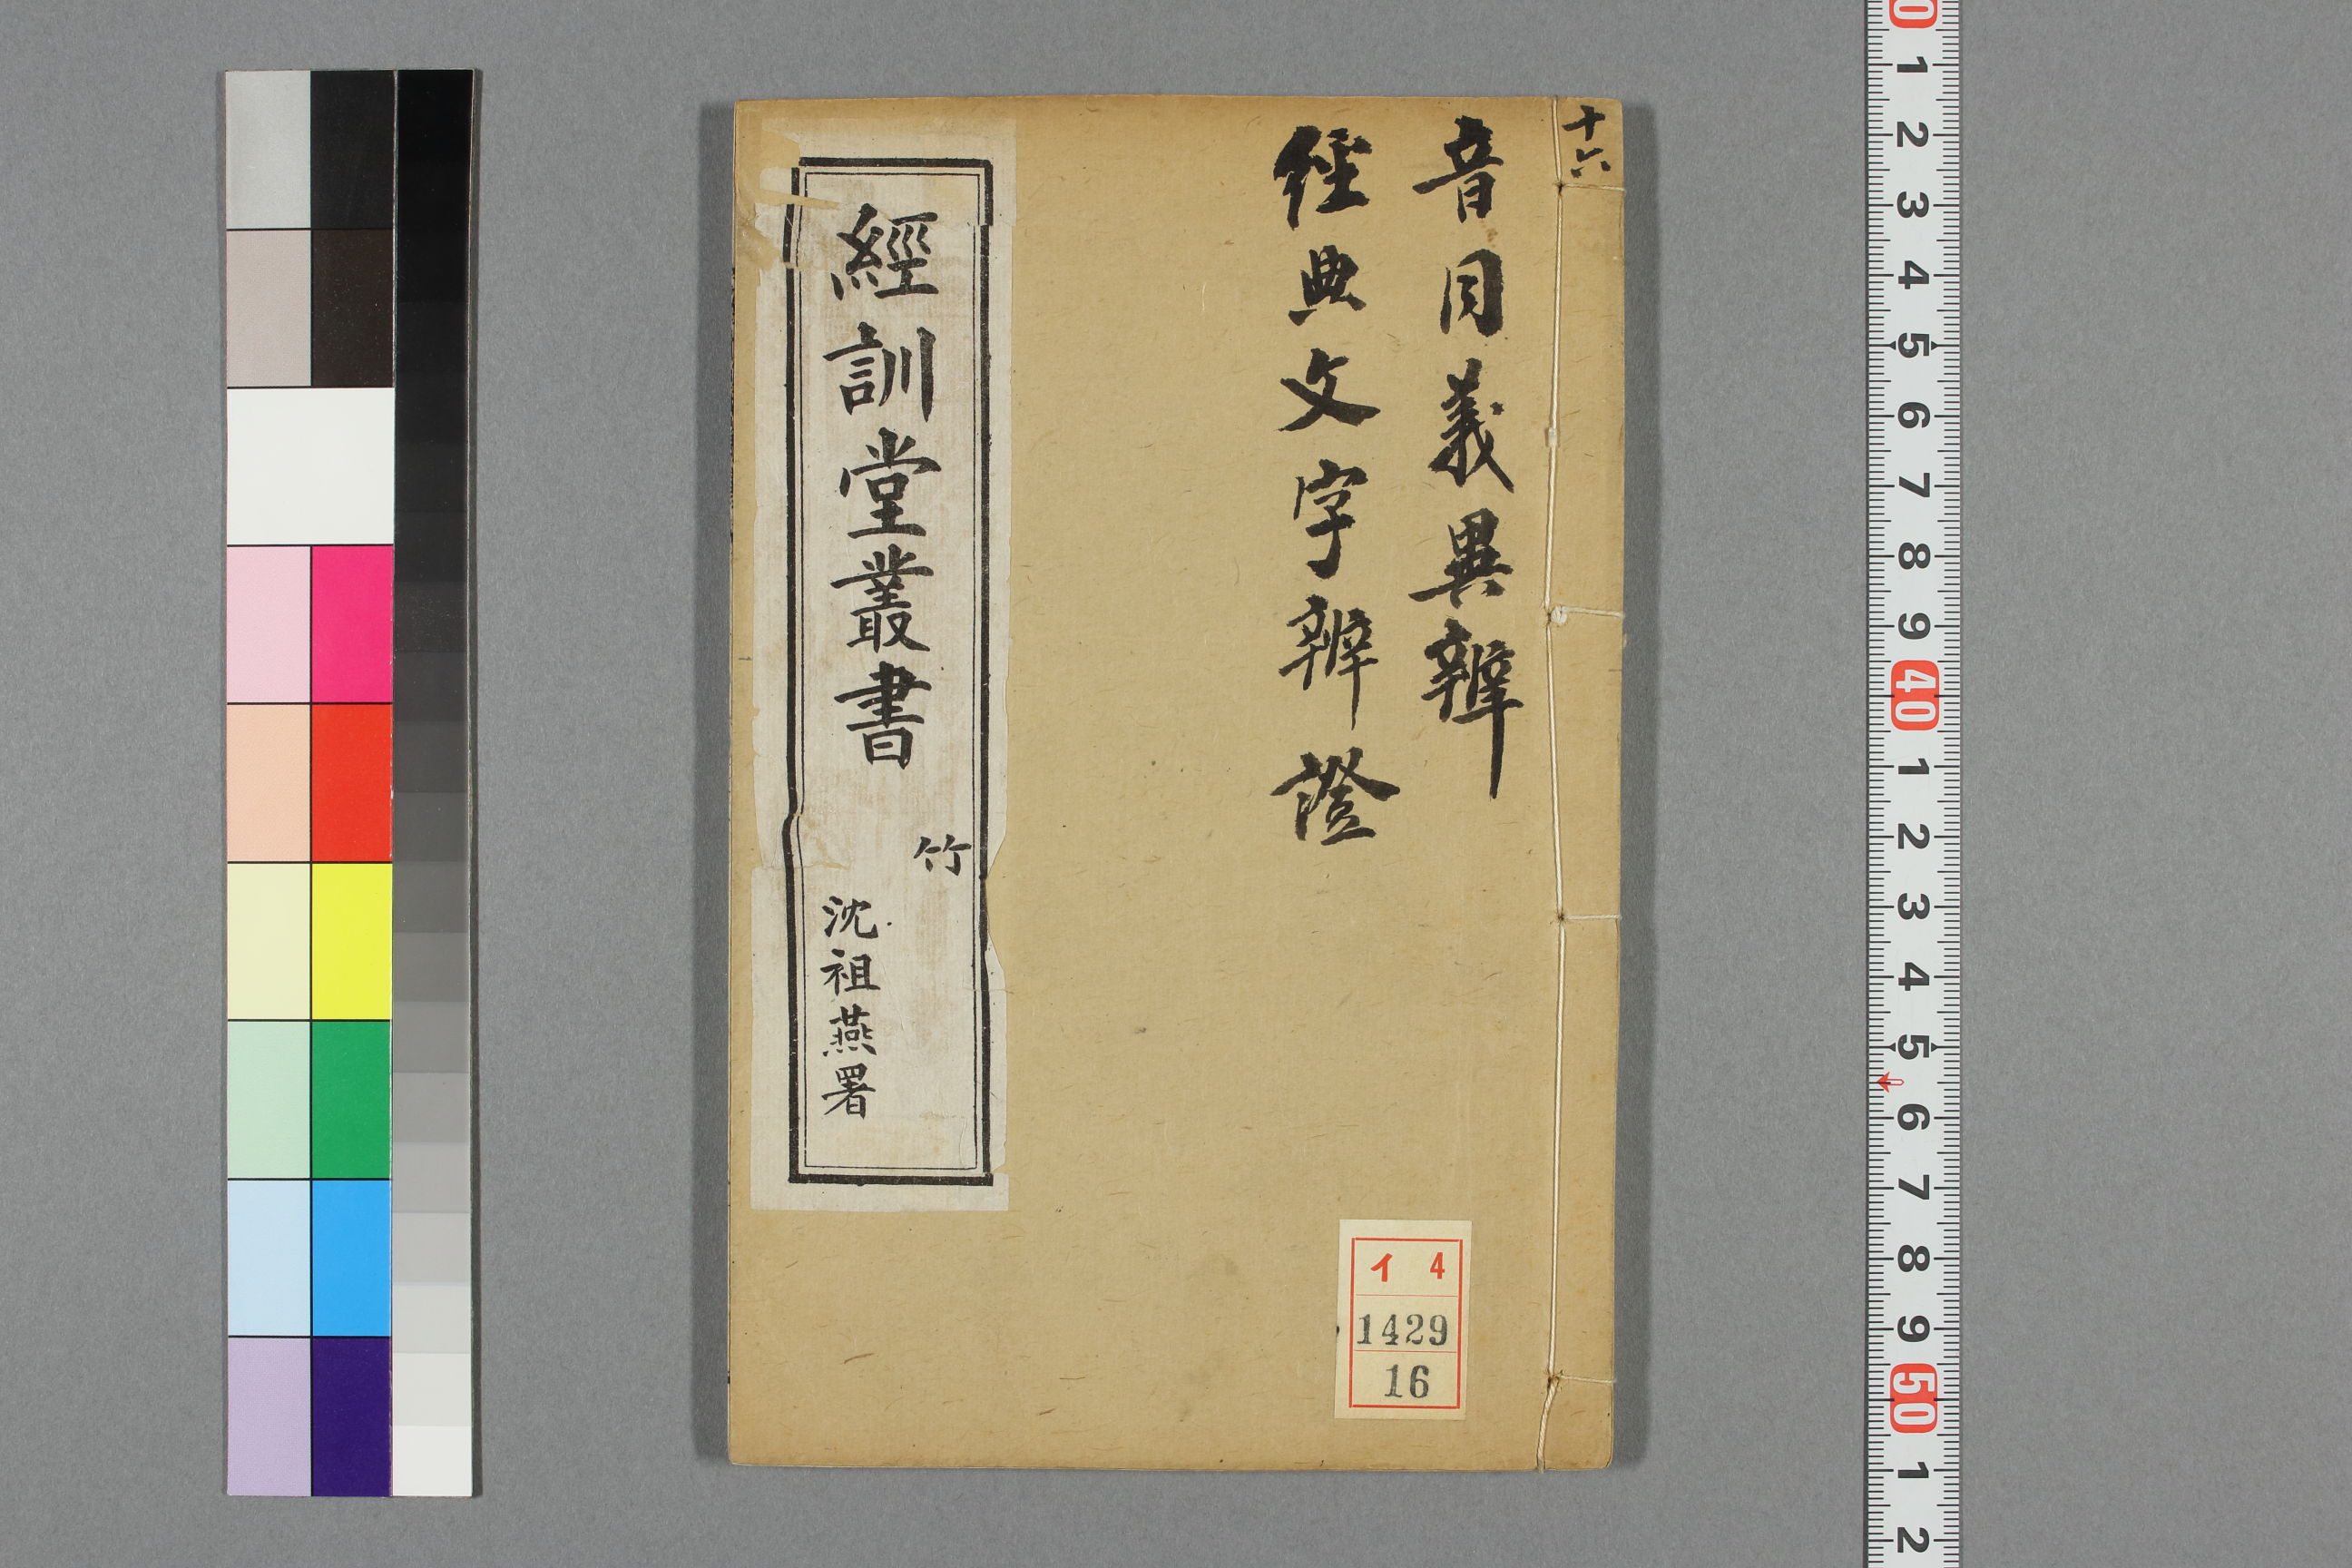 十六
音同義異辨
經典文字辨證
經訓堂叢書
竹
沈祖燕署
イ 4
1429
16
0 1 2 3 4 5 6 7 8 9 40 1 2 3 4 5 6 7 8 9 50 1 2